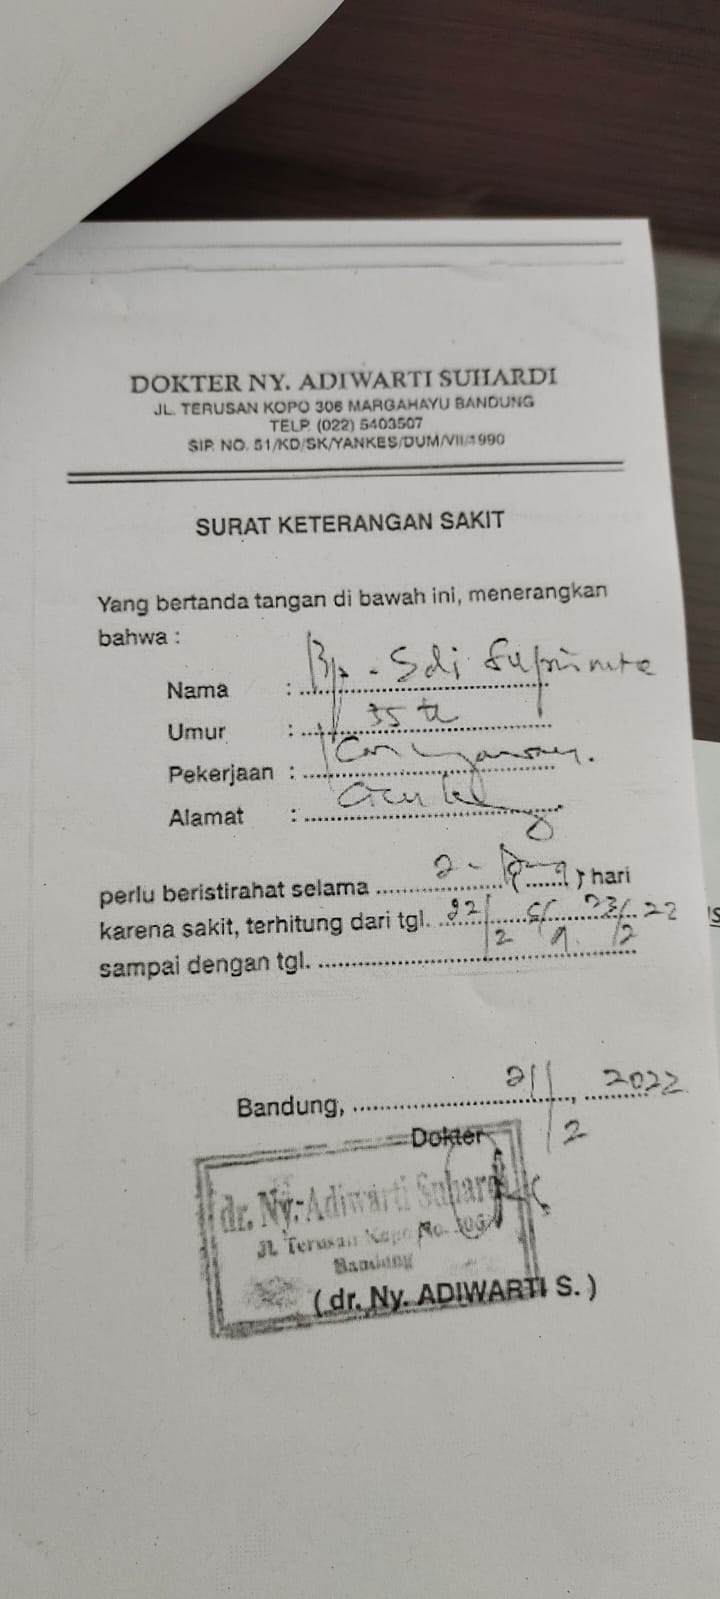 DOKTER NY. ADIWARTI SUHARDI
JL. TERUSAN KOPO 306 MARGAHAYU BANDUNG
TELP. (022) 5403507
SIP. NO. 51/KD/SK/YANKES/DUM/VII/1990
SURAT KETERANGAN SAKIT
Yang bertanda tangan di bawah ini, menerangkan
bahwa :
Nama : Bp. Sdi
Umur : 35 th
Pekerjaan :
Alamat :
perlu beristirahat selama 2 - ) hari
karena sakit, terhitung dari tgl. 22/2 23/2 22
sampai dengan tgl.
Bandung, 21/2, 2022
Dokter
dr. Ny. Adiwarti Suhardi
Jl. Terusan Kopo No. 306
Bandung
( dr. Ny. ADIWARTI S. )